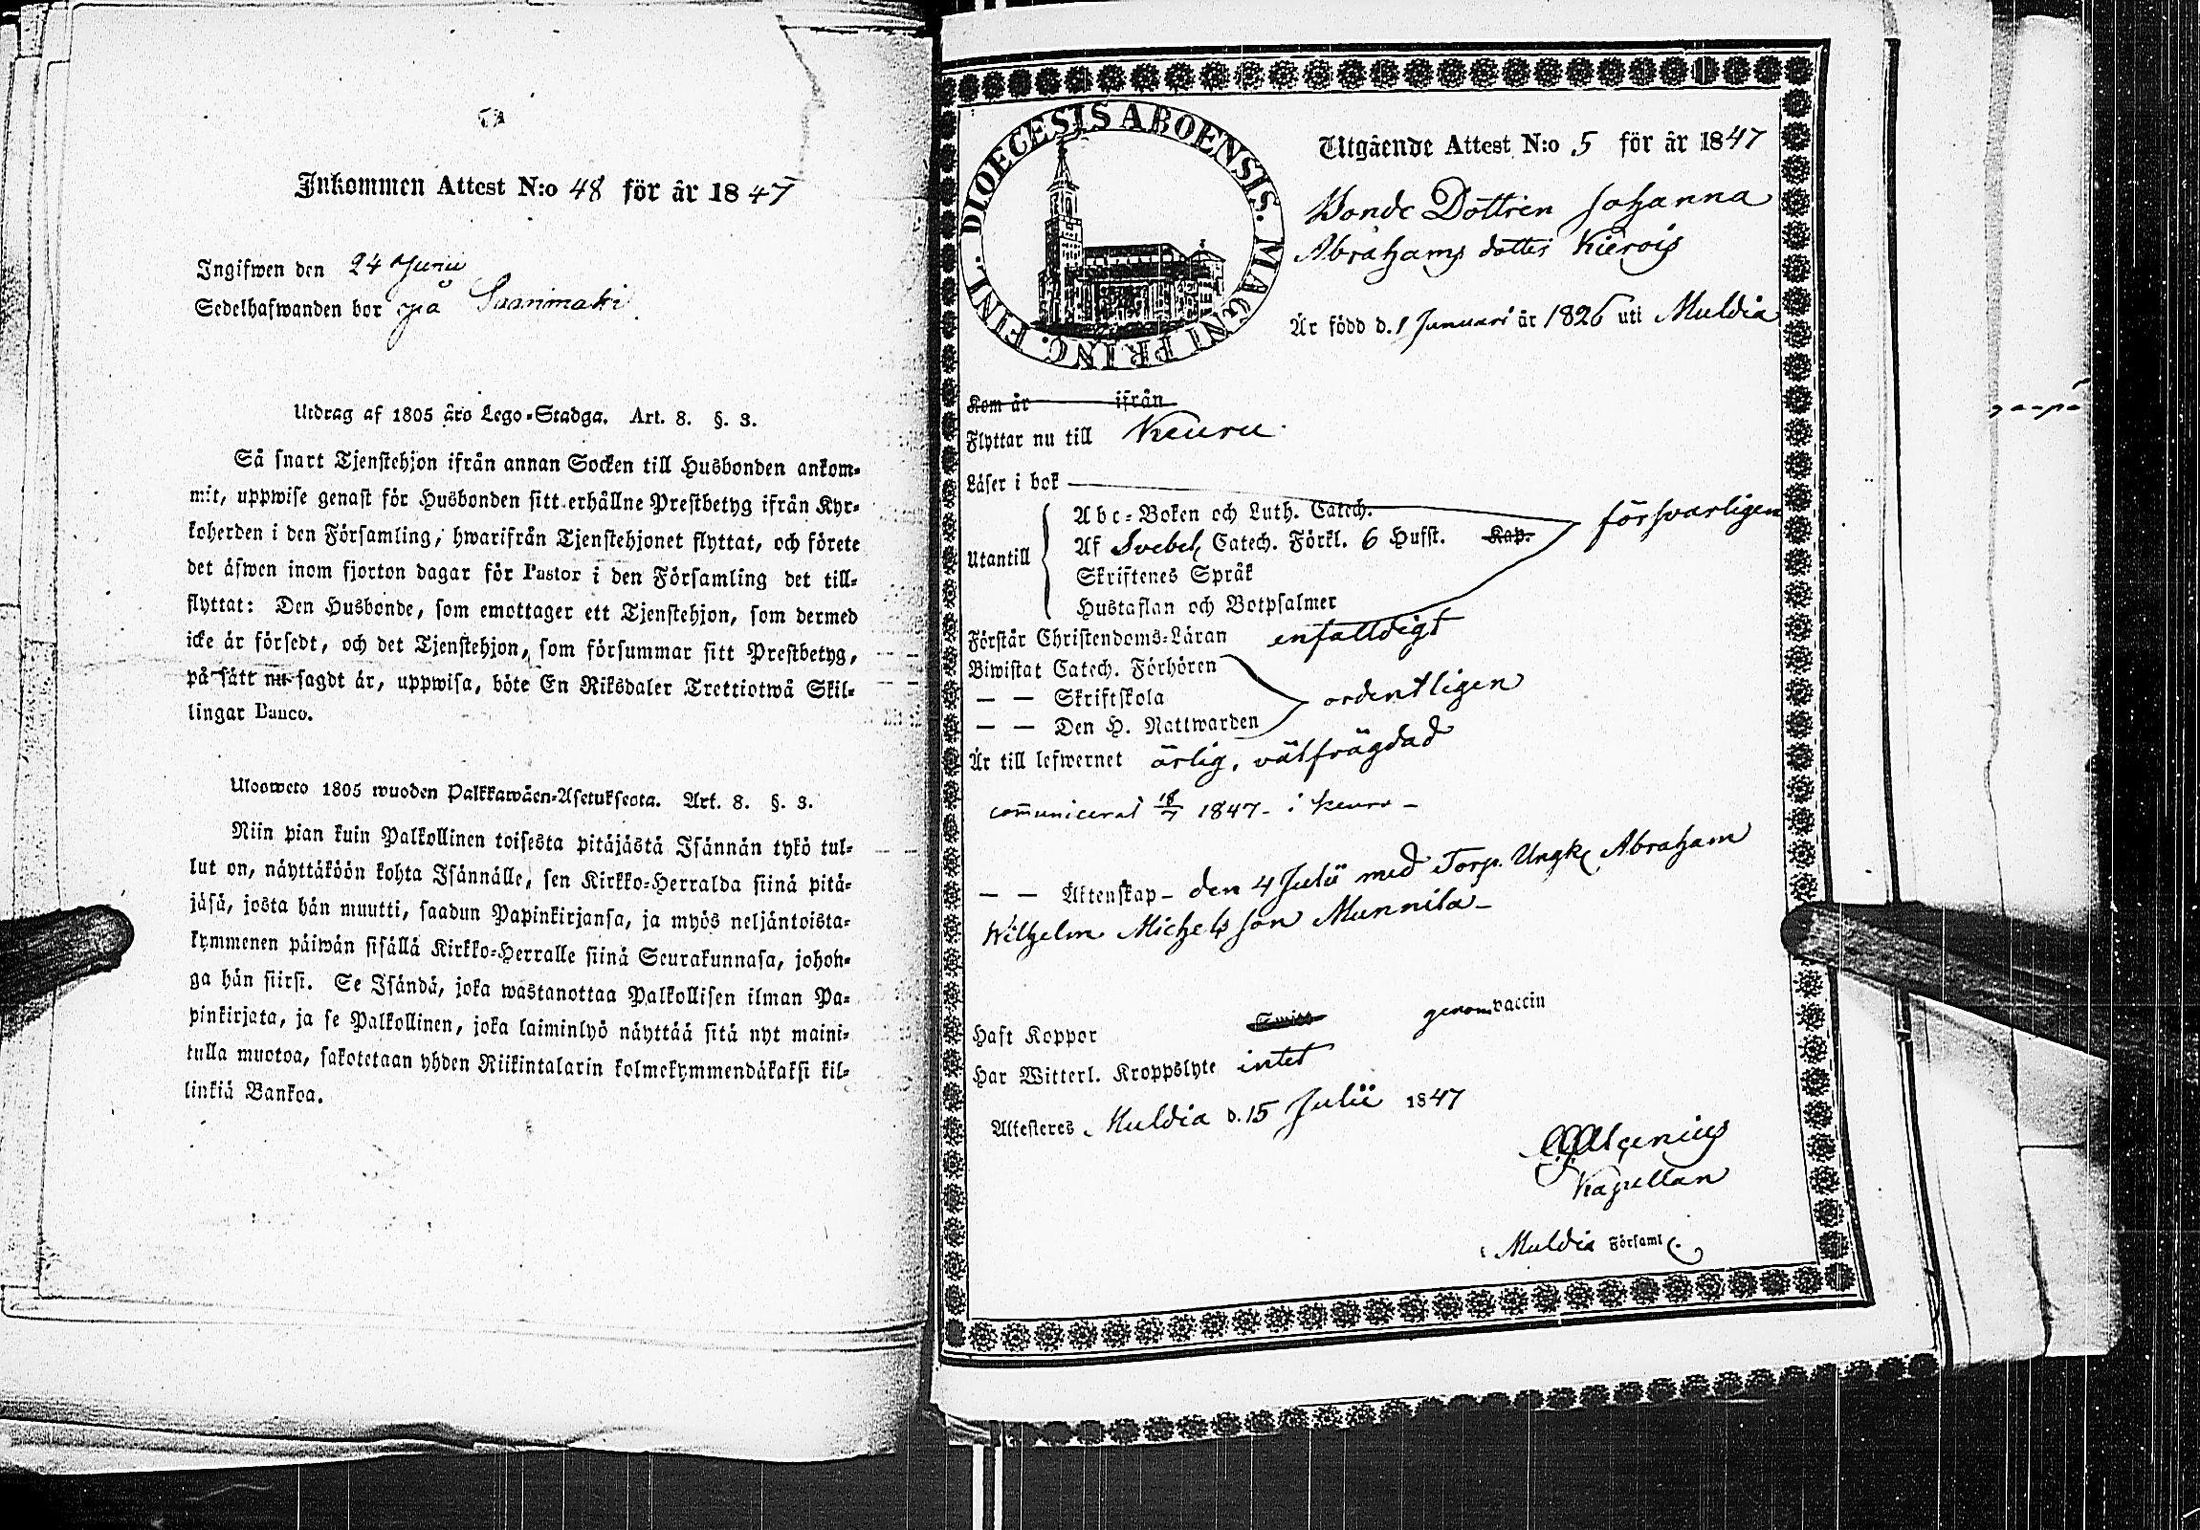 Inkommen Attest N:o 48 för år 1847
Ingifwen den 24 Junii
Sedelhafwanden bor på Saarimaki
Utdrag af 1805 års Lego-Stadga. Art. 8. §. 3.
Så snart Tjenstehjon ifrån annan Socken till Husbonden ankom-
mit, uppwise genast för Husbonden sitt erhållne Prestbetyg ifrån Kyr-
koherden i den Församling, hwarifrån Tjenstehjonet flyttat, och förete
det äfwen inom fjorton dagar för Pastor i den Församling det till-
flyttat: Den Husbonde, som emottager ett Tjenstehjon, som dermed
icke är försedt, och det Tjenstehjon, som försummar sitt Prestbetyg,
på sätt nu sagdt är, uppwisa, böte En Riksdaler Trettiotwå Skil-
lingar Banco.
Ulooweto 1805 wuoden Palkkawäen-Asetuksesta. Art. 8. §. 3.
Niin pian kuin Palkollinen toisesta pitäjästä Isännän tykö tul-
lut on, näyttäköön kohta Isännälle, sen Kirkko-Herralda siinä pitä-
jäsä, josta hän muutti, saadun Papinkirjansa, ja myös neljäntoista-
kymmenen päiwän sisällä Kirkko-Herralle siinä Seurakunnasa, johon-
ga hän siirsi. Se Isändä, joka wastanottaa Palkollisen ilman Pa-
pinkirjata, ja se Palkollinen, joka laiminlyö näyttää sitä nyt maini-
tulla muotoa, sakotetaan yhden Riikintalarin kolmekymmendäkaksi kil-
linkiä Bankoa.
DIOECESIS ABOENSIS. MAGNI PRINC. FINL.
Utgående Attest N:o 5 för år 1847
Bonde Dottren Johanna
Abrahams dotter Kierois
Är född d. 1 Januari år 1826 uti Muldia
Kom år ifrån
Flyttar nu till Keuru
Läser i bok
Utantill
Abc-Boken och Luth. Catech.
Af Svebel. Catech. Förkl. 6 Hufst. Kap.
Skriftenes Språk
Hustaflan och Botpsalmer
försvarligen
Förstår Christendoms-Läran enfalldigt
Biwistat Catech. Förhören
— — Skriftskola
— — Den H. Nattwarden
ordentligen
Är till lefwernet ärlig, välfrägdad
communicerat 18/7 1847 - i Keuru -
— — Äktenskap - den 4 Julii med Torp. Ungk. Abraham
Wilhelm Michelsson Munnila -
Haft Koppor genom vaccin
Har Witterl. Kroppslyte intet
Attesteres Muldia d. 15 Julii 1847
Kapellan
i Muldia Församl.